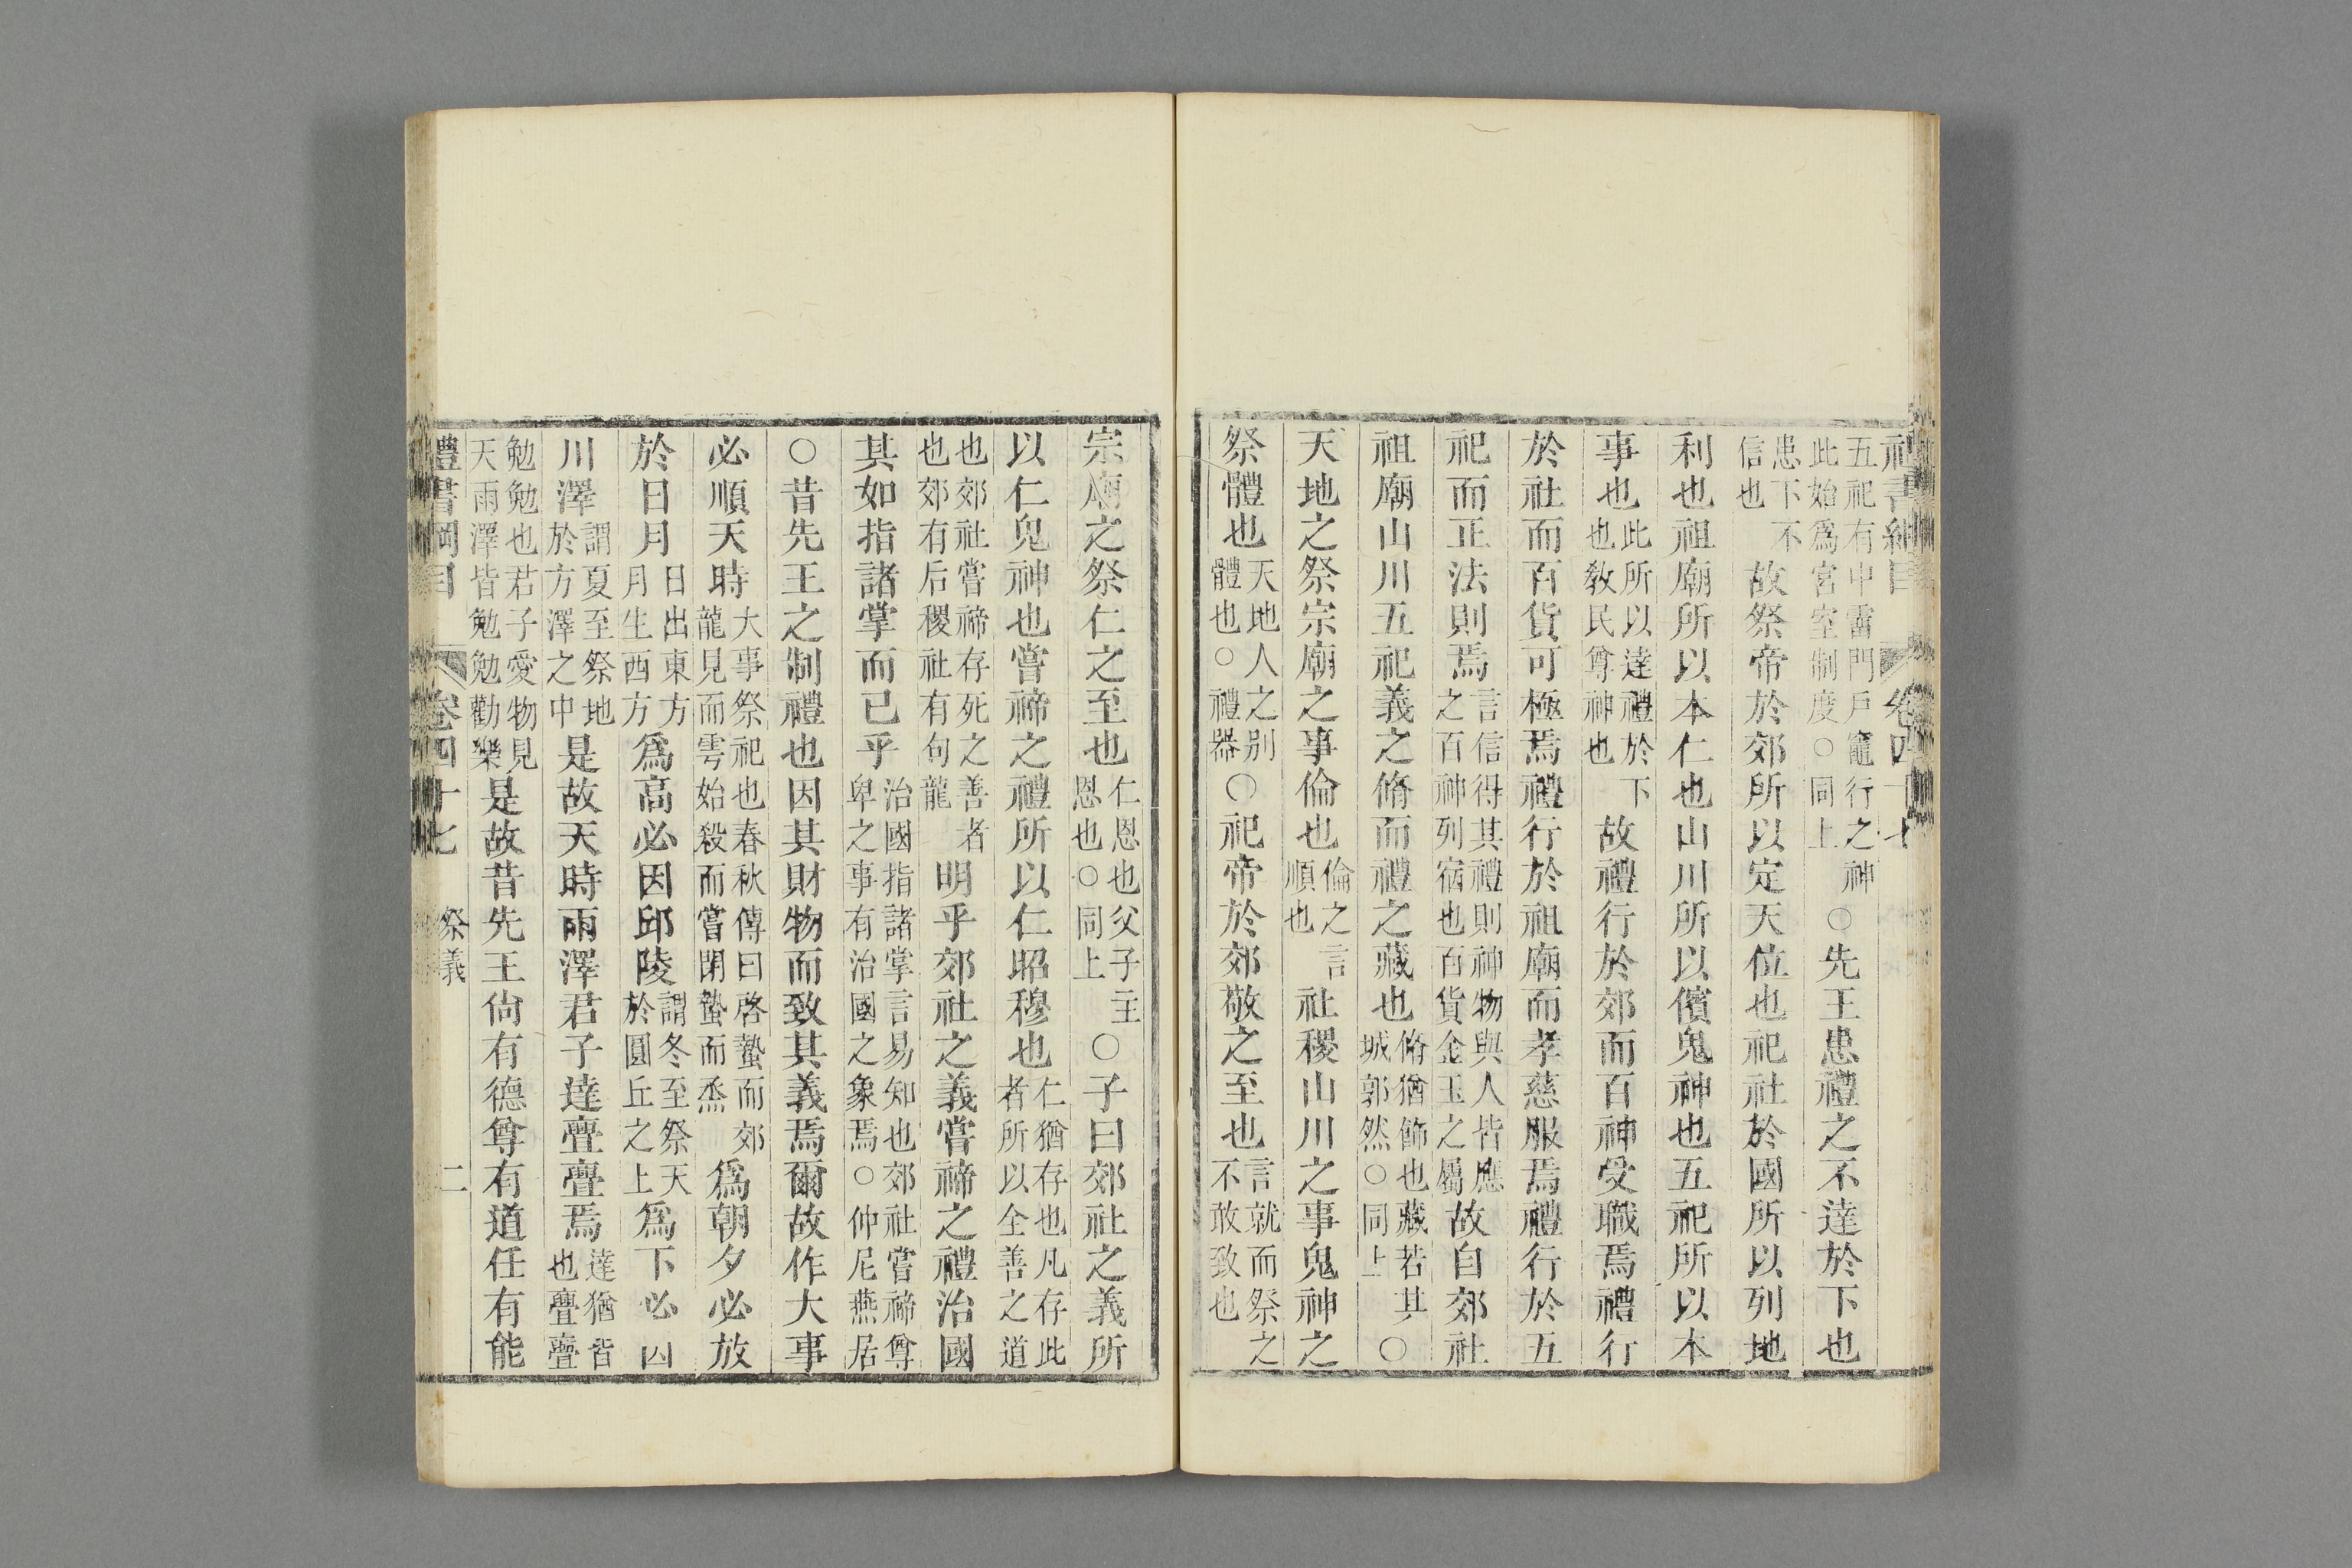 禮書綱目 卷四十七
五祀有中霤門戶竈行之神此始爲宮室制度○同上○先王患禮之不達於下也
患下不信也故祭帝於郊所以定天位也祀社於國所以列地
利也祖廟所以本仁也山川所以儐鬼神也五祀所以本
事也此所以達禮於下也教民尊神也故禮行於郊而百神受職焉禮行
於社而百貨可極焉禮行於祖廟而孝慈服焉禮行於五
祀而正法則焉言信得其禮則神物與人皆應之百神列宿也百貨金玉之屬故自郊社
祖廟山川五祀義之脩而禮之藏也脩猶飾也藏若其城郭然○同上○
天地之祭宗廟之事倫也倫之言順也社稷山川之事鬼神之
祭體也天地人之别體也○禮器○祀帝於郊敬之至也言就而祭之不敢致也
宗廟之祭仁之至也仁恩也父子主恩也○同上○子曰郊社之義所
以仁鬼神也嘗禘之禮所以仁昭穆也仁猶存也凡存此者所以全善之道
也郊社嘗禘存死之善者也郊有后稷社有句龍明乎郊社之義嘗禘之禮治國
其如指諸掌而已乎治國指諸掌言易知也郊社嘗禘尊卑之事有治國之象焉○仲尼燕居
○昔先王之制禮也因其財物而致其義焉爾故作大事
必順天時大事祭祀也春秋傳曰啓蟄而郊龍見而雩始殺而嘗閉蟄而烝爲朝夕必放
於日月日出東方月生西方爲高必因邱陵謂冬至祭天於圓丘之上爲下必因
川澤謂夏至祭地於方澤之中是故天時雨澤君子達亹亹焉達猶皆也亹亹
勉勉也君子愛物見天雨澤皆勉勉勸樂是故昔先王尙有德尊有道任有能
禮書綱目 卷四十七 祭義 二